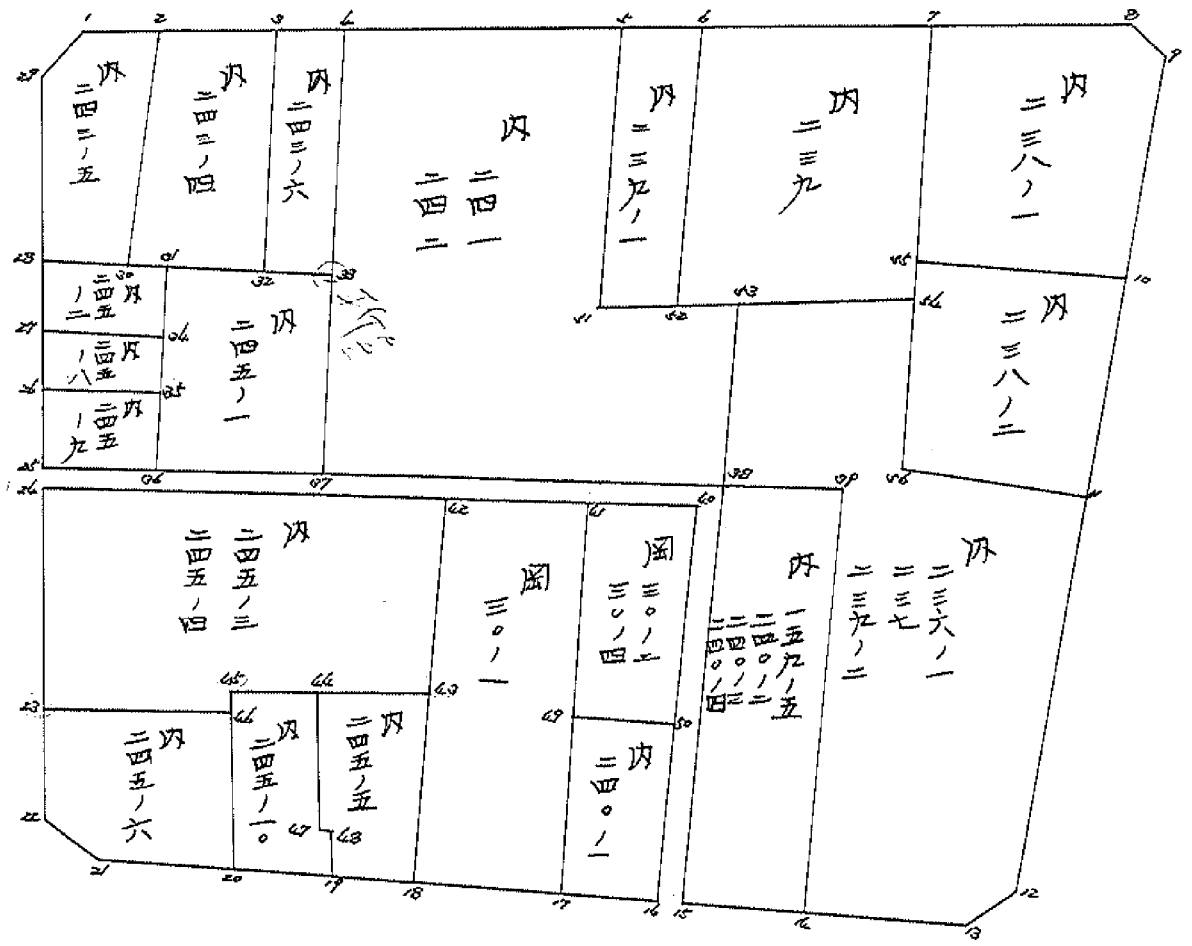 1
2
3
4
5
6
7
8
9
29
内
二四三ノ五
内
二四三ノ四
内
二四三ノ六
内
二四一
二四二
内
二三九ノ一
内
二三九
内
二三八ノ一
28
30
31
32
33
10
内
二四五ノ二
27
34
内
二四五ノ八
26
35
内
二四五ノ九
25
36
37
内
二四五ノ一
51
52
53
54
55
内
二三八ノ二
56
11
24
38
39
40
41
42
内
二四五ノ三
二四五ノ四
岡
三〇ノ一
岡
三〇ノ二
三〇ノ四
内
一五九ノ五
二四〇ノ二
二四〇ノ三
二四〇ノ四
内
二三六ノ一
二三七
二三九ノ二
23
45
44
43
46
49
50
内
二四五ノ六
内
二四五ノ一〇
内
二四五ノ五
47
48
内
二四〇ノ一
22
21
20
19
18
17
16
15
14
13
12